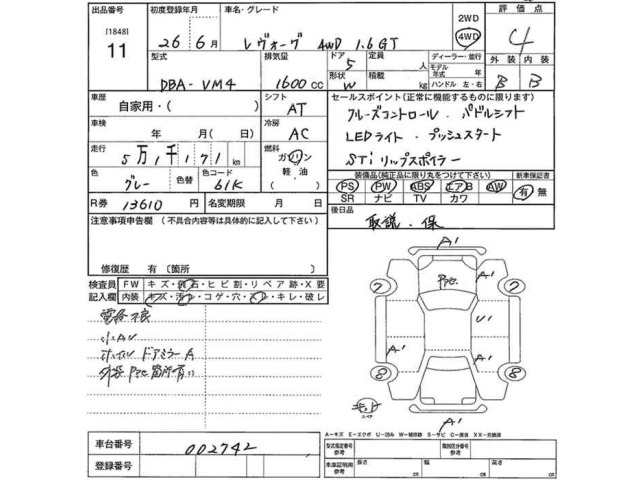 出品番号 初度登録年月 車名・グレード 2WD 4WD 評価点
[1848]
11 26年6月 レヴォーグ 4WD 1.6GT 4
型式 排気量 ドア 定員 ディーラー・並行 外装 内装
DBA-VM4 1600cc 5 人 モデル年式 年 B B
形状 W 積載 kg ハンドル 左・右
車歴 自家用・( ) シフト AT セールスポイント(正常に機能するものに限ります)
車検 年 月( 日) 冷房 AC クルーズコントロール・パドルシフト
LEDライト・プッシュスタート
走行 5万1千171km 燃料 ガソリン 軽油 STiリップスポイラー
色 グレー 色替 色コード 61K 装備品(純正品に限り丸をつけて下さい) 新車保証書
PS PW ABS エアB AW 有・無
SR ナビ TV カワ
R券 13610円 名変期限 月 日 後日品
注意事項申告欄(不具合内容等は具体的に記入して下さい) 取説・保
修復歴 有〔箇所 〕
検査員記入欄 FW キズ・飛石・ヒビ割・リペア跡・X要
内装 キズ・汚レ・コゲ・穴・スレ・キレ・破レ
小AU
ドアミラーA
A1
Pte. A1
7 7
U1
A1 A1
8 8
スペア
A1
A-キズ E-エクボ U-凹み W-補修跡 S-サビ C-腐食 XX-交換済
車台番号 002742 型式指定番号 参考 類別区分番号 参考
登録番号 車庫証明用 参考 長さ cm 幅 cm 高さ cm